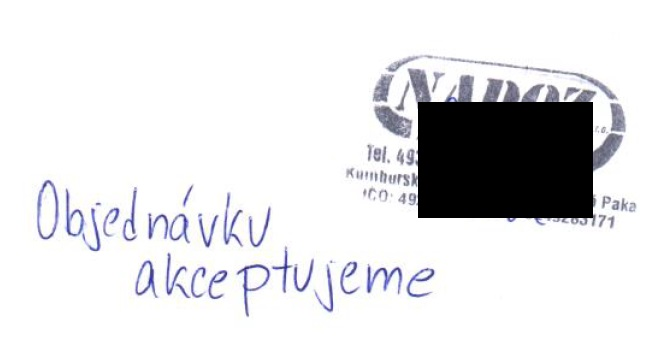 NAPOZ
Tel. 49
Kumbursk
Paka
IČO: 49
3283171
Objednávku
akceptujeme